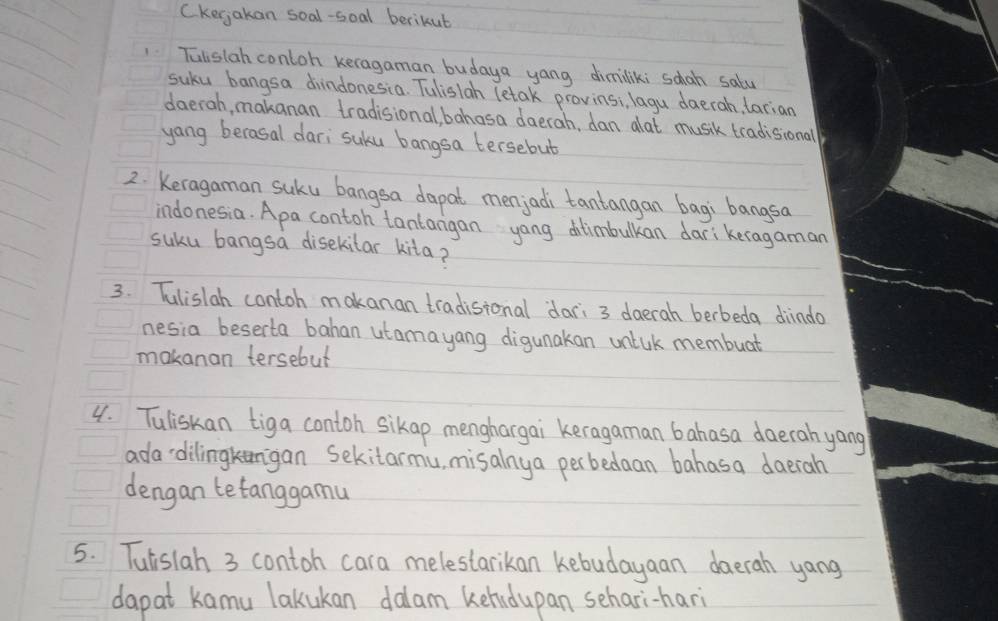 C Kerjakan soal-soal berikut
1. Tulislah contoh keragaman budaya yang dimiliki salah satu
suku bangsa diindonesia. Tulislah letak provinsi, lagu daerah, tarian
daerah, makanan tradisional, bahasa daerah, dan alat musik tradisional
yang berasal dari suku bangsa tersebut
2. Keragaman suku bangsa dapat menjadi tantangan bagi bangsa
indonesia. Apa contoh tantangan yang ditimbulkan dari keragaman
suku bangsa disekitar kita?
3. Tulislah contoh makanan tradisional dari 3 daerah berbeda diindo
nesia beserta bahan utama yang digunakan untuk membuat
makanan tersebut
4. Tuliskan tiga contoh sikap menghargai keragaman bahasa daerah yang
ada dilingkungan Sekitarmu, misalnya perbedaan bahasa daerah
dengan tetanggamu
5. Tulislah 3 contoh cara melestarikan kebudayaan daerah yang
dapat kamu lakukan dalam kehidupan sehari-hari